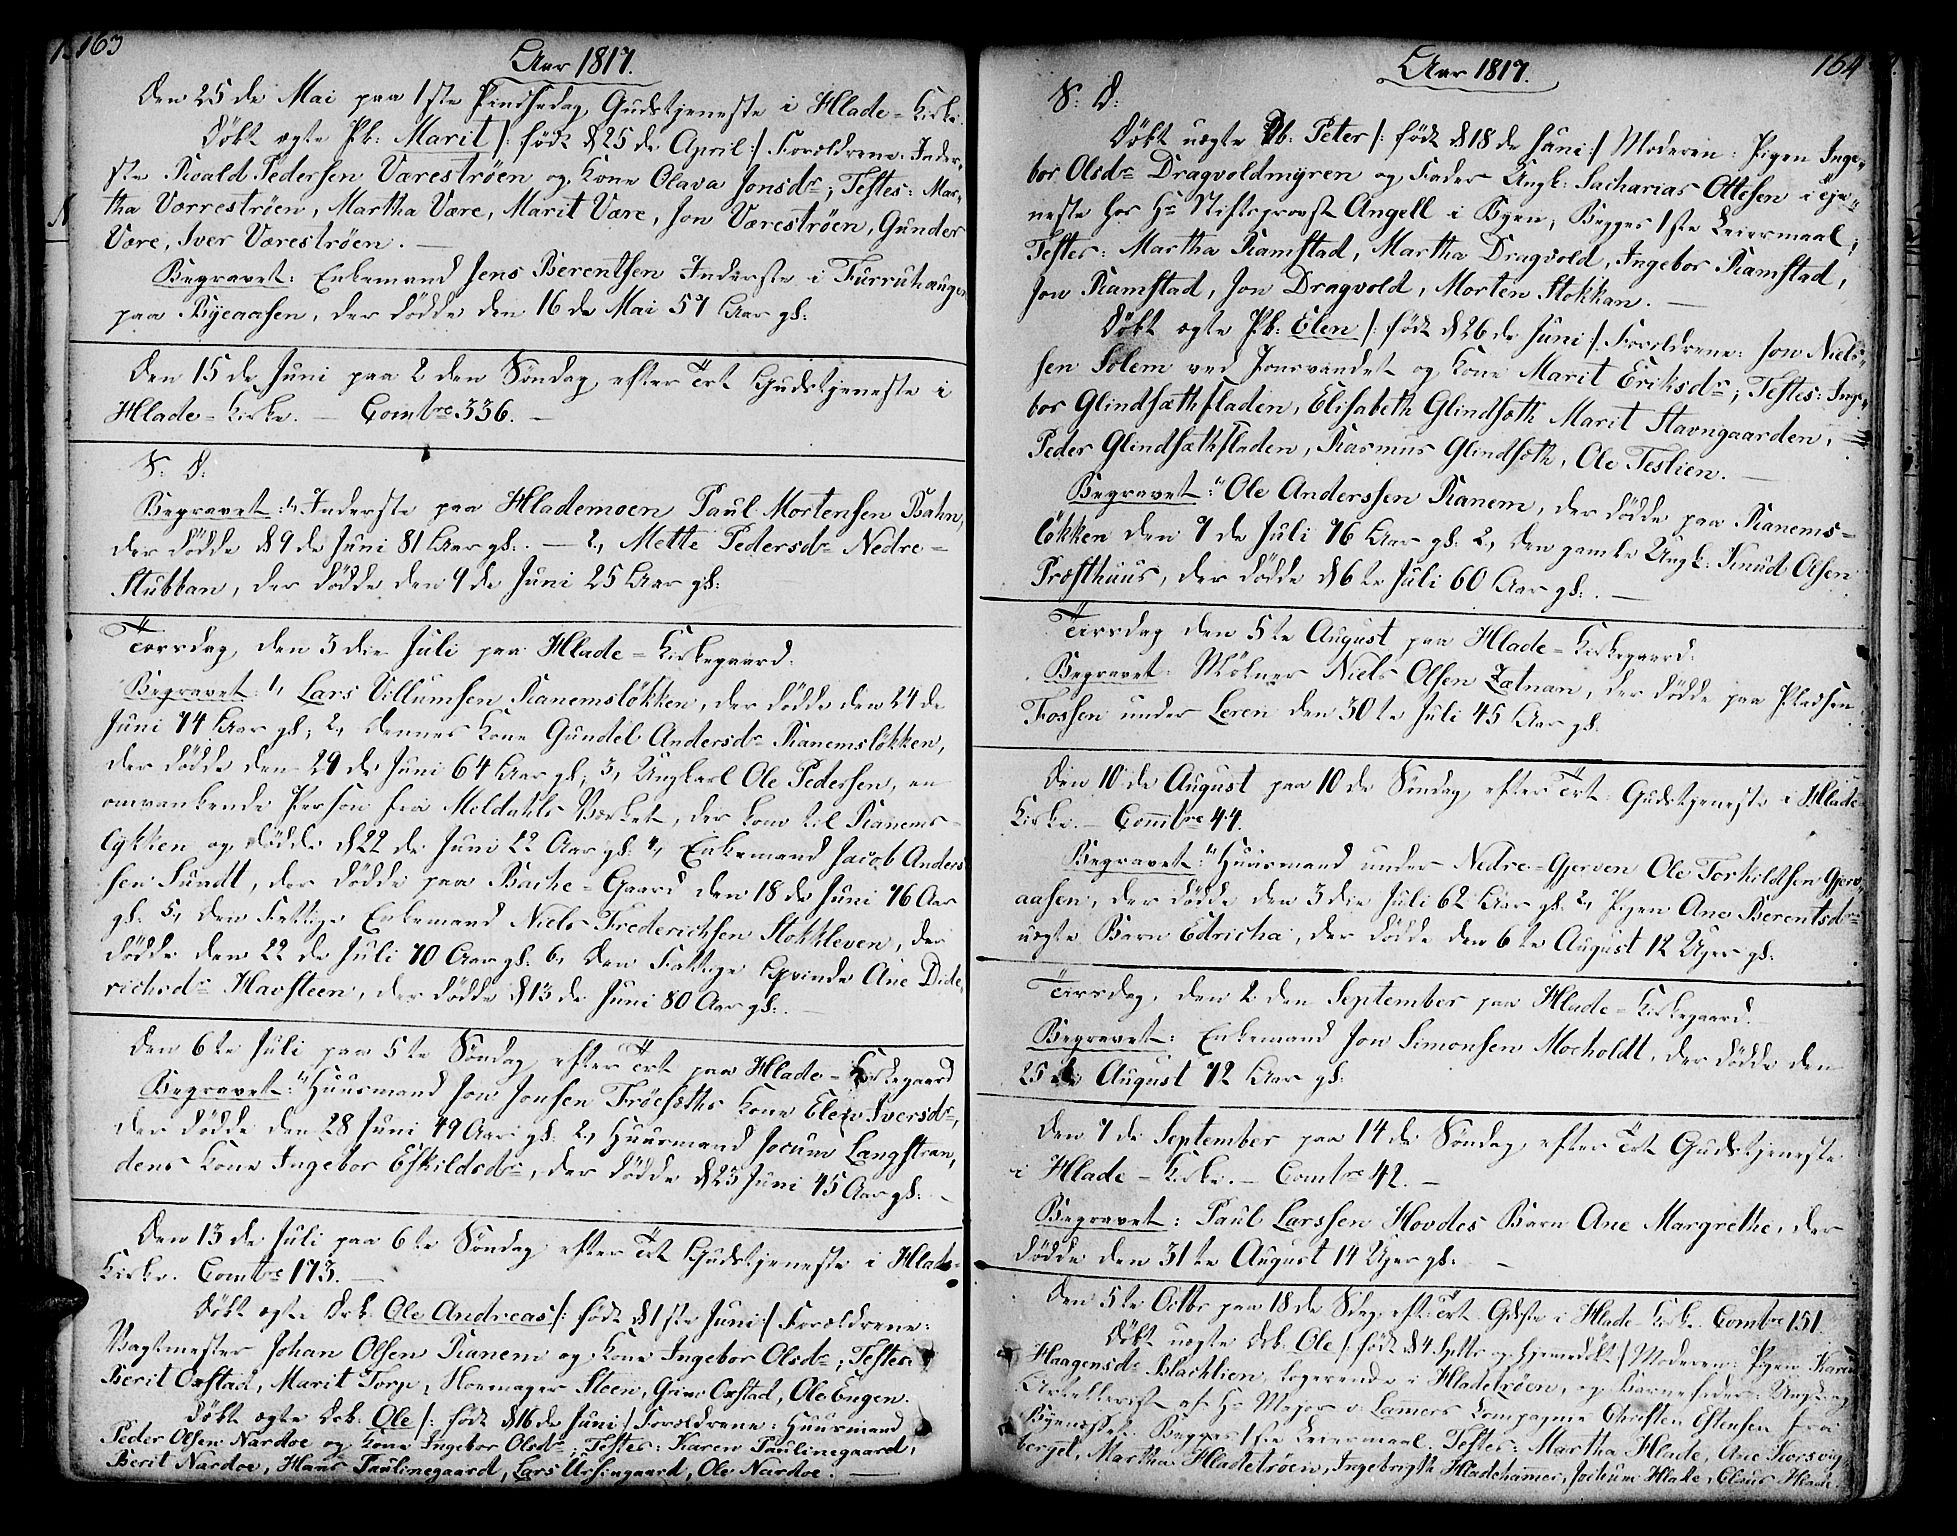 163
Aar 1817.
Den 25de Mai paa 1ste Pindsedag, Gudstjeneste i Hlade-Kirke.
Döbt ægte Pb: Marit /: född d 25de April :/ Forældrene: Inder-
ste Roald Pedersen Værestrøen og Kone Olava Jonsdr; Testes: Mar-
tha Vorrestrøen, Martha Være, Marit Være, Jon Værestrøen, Gunder
Være, Iver Værestrøen. —
Begravet: Enkemand Jens Berentsen Inderste i Furruhaugen
paa Byeaasen, der döde den 16de Mai 57 Aar gl:
Den 15de Juni paa 2den Söndag efter Trt Gudstjeneste i
Hlade-Kirke. — Combre 336. —
S: D:
Begravet: 1, Inderste paa Hlademoen Paul Mortensen Bahn,
der döde d 9de Juni 81 Aar gl:. — 2, Mette Pedersdr Nedre-
Stubban, der döde den 9de Juni 25 Aar gl:
Torsdag, den 3die Juli paa Hlade-Kirkegaard.
Begravet: 1, Lars Villumsen Ranemsløkken, der döde den 24de
Juni 74 Aar gl; 2, dennes Kone Gundel Andersdr Ranemsløkken,
der döde den 29de Juni 64 Aar gl; 3, Ungkarl Ole Pedersen, en
omvankende Person fra Meldahls Værket, der kom til Ranems-
lykken og döde d 22de Juni 22 Aar gl: 4, Enkemand Jacob Anders
sen Sundt, der döde paa Bakke-Gaard den 18de Juni 76 Aar
gl: 5, den Fattige Enkemand Niels Frederichsen Stokkleven, der
döde den 22de Juli 70 Aar gl: 6, den Fattige Qvinde Ane Dide-
richsdr Havsteen, der döde d 13de Juni 80 Aar gl:. —
Den 6te Juli paa 5te Söndag efter Trt paa Hlade-Kirkegaard
Begravet: 1, Huusmand Jon Jonsen Trøesæths Kone Elen Iversdr,
der döde den 28 Juni 49 Aar gl: 2, Huusmand Jocum Langstran-
dens Kone Ingebor Eskildsdr, der döde d 23 Juni 45 Aar gl:. —
Den 13de Juli paa 6te Söndag efter Trt Gudstjeneste i Hlade-
Kirke. Combre 173. —
Döbt ægte Drb. Ole Andreas /: född d 1ste Juni :/ Forældrene:
Vagtmester Johan Olsen Ranem og Kone Ingebor Olsdr; Testes:
Berit Oxstad, Marit Torp, Steen, Oxstad, Ole Engen.
Döbt ægte Drb. Ole /: född d 16de Juni :/ Forældrene: Huusmand
Peder Olsen Nardoe og Kone Ingebor Olsdr; Testes: Karen Paulinegaard,
Berit Nardoe, Hans Paulinegaard, Lars Ursingaard, Ole Nardoe. —
164
Aar 1817.
S: D:
Döbt uægte Db. Peter /: född d 18de Juni :/ Moderen: Pigen Inge-
bor Olsdr Dragvoldmyren og Fader Ungk: Sacharias Ottesen i tje-
neste hos Hr Stiftsprovst Angell i Byen; Begges 1ste Leiermaal;
Testes: Martha Ramstad, Martha Dragvold, Ingebor Ramstad,
Jon Ramstad, Jon Dragvold, Morten Stokkan. —
Döbt ægte Pb: Elen /: född d 26de Juni :/ Forældrene: Jon Niels-
sen Solem ved Jonsvandet og Kone Marit Eriksdr; Testes: Inge-
bor Glindsæthfladen, Elisabeth Glindsæth Marit Stavngaarden,
Peder Glindsæthfladen, Rasmus Glindsæth, Ole Teslien. —
Begravet: 1, Ole Anderssen Ranem, der döde paa Ranems-
løkken den 7de Juli 76 Aar gl: 2, den gamle Ungk: Knud Olsen
Præsthuus, der döde d 6te Juli 60 Aar gl:. —
Tirsdag den 5te August paa Hlade-Kirkegaard.
Begravet: Mölner Niels Olsen Zatnan, der döde paa Pladsen
Fossen under Leren den 30te Juli 45 Aar gl.
Den 10de August paa 10de Söndag efter Trt. Gudstjeneste i Hlade-
Kirke. — Combre 44.
Begravet: 1, Huusmand under Nedre-Gjerven Ole Torkildsen Gjerv-
aasen, der döde den 3die Juli 62 Aar gl: 2, Pigen Ane Berentsdr
uægte Barn Edricha, der döde den 6te August 12 Uger gl:
Tirsdag, den 2den September paa Hlade-Kirkegaard.
Begravet: Enkemand Jon Simonsen Moholdt, der döde den
25de August 72 Aar gl:
Den 7de September paa 14de Söndag efter Trt Gudstjeneste
i Hlade-Kirke. — Combre 42. —
Begravet: Paul Larssen Hovdes Barn Ane Margrethe, der
döde den 31te August 14 Uger gl: —
Den 5te Octbr paa 18de Sdag eft: Trt. Gdste i Hlade-Kirke. Combre 151.
Döbt uægte Drb. Ole /: född d 4 Septbr og hjemmedöbt :/ Moderen: Pigen Karen
Haagensdr Blachlien, logerende i Hladetrøen, og Barnefader: Ungk: og
af Hr Major v: Lamers Compagnie Christen Estensen fra
Byenæsset. Begges 1ste Leiermaal. Testes: Martha Hlade, Ane Korsvig-
berget, Martha Hladetrøen, Ingebrigt Hladehammer, Jochum Hlade, Claus Hlade.